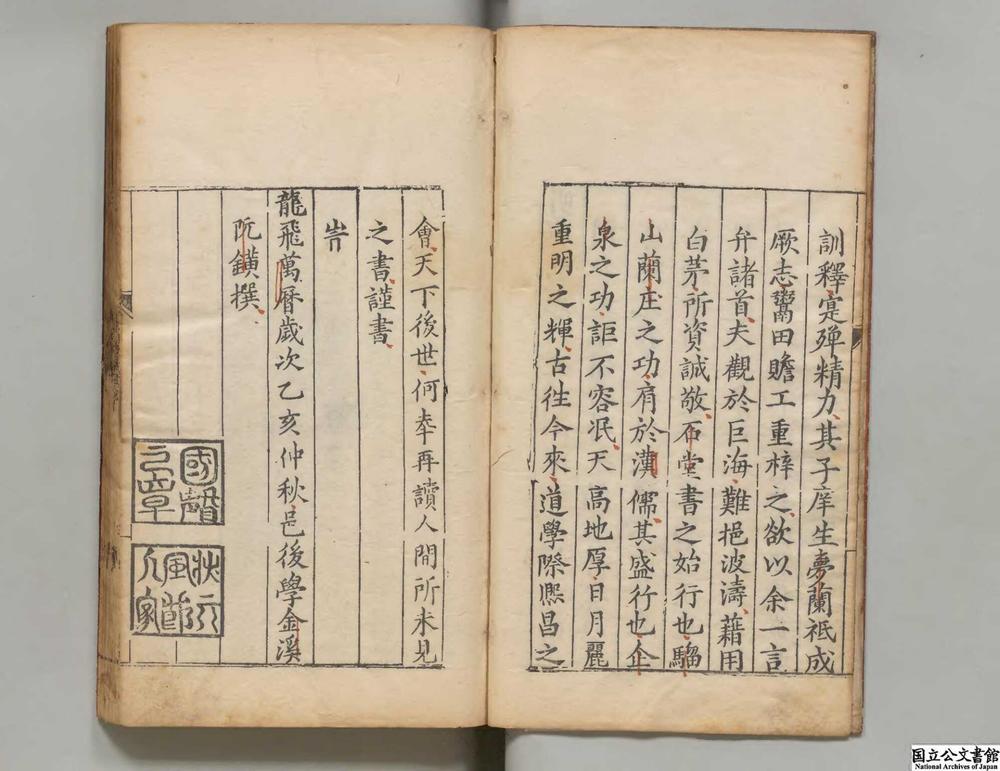 訓釋寔殫精力其子庠生夢蘭祗成
厥志鬻田贍工重梓之欲以余一言
弁諸首夫觀於巨海難挹波濤藉用
白茅所資誠敬石堂書之始行也騶
山蘭庄之功有於漢儒其盛行也企
泉之功詎不容冺天高地厚日月麗
重明之輝古徃今來道學際熈昌之
會天下後世何幸再讀人間所未見
之書謹書
旹
龍飛萬曆歲次乙亥仲秋邑後學金溪
阮鐄撰
國聲之章
狀元風節人家
国立公文書館
National Archives of Japan